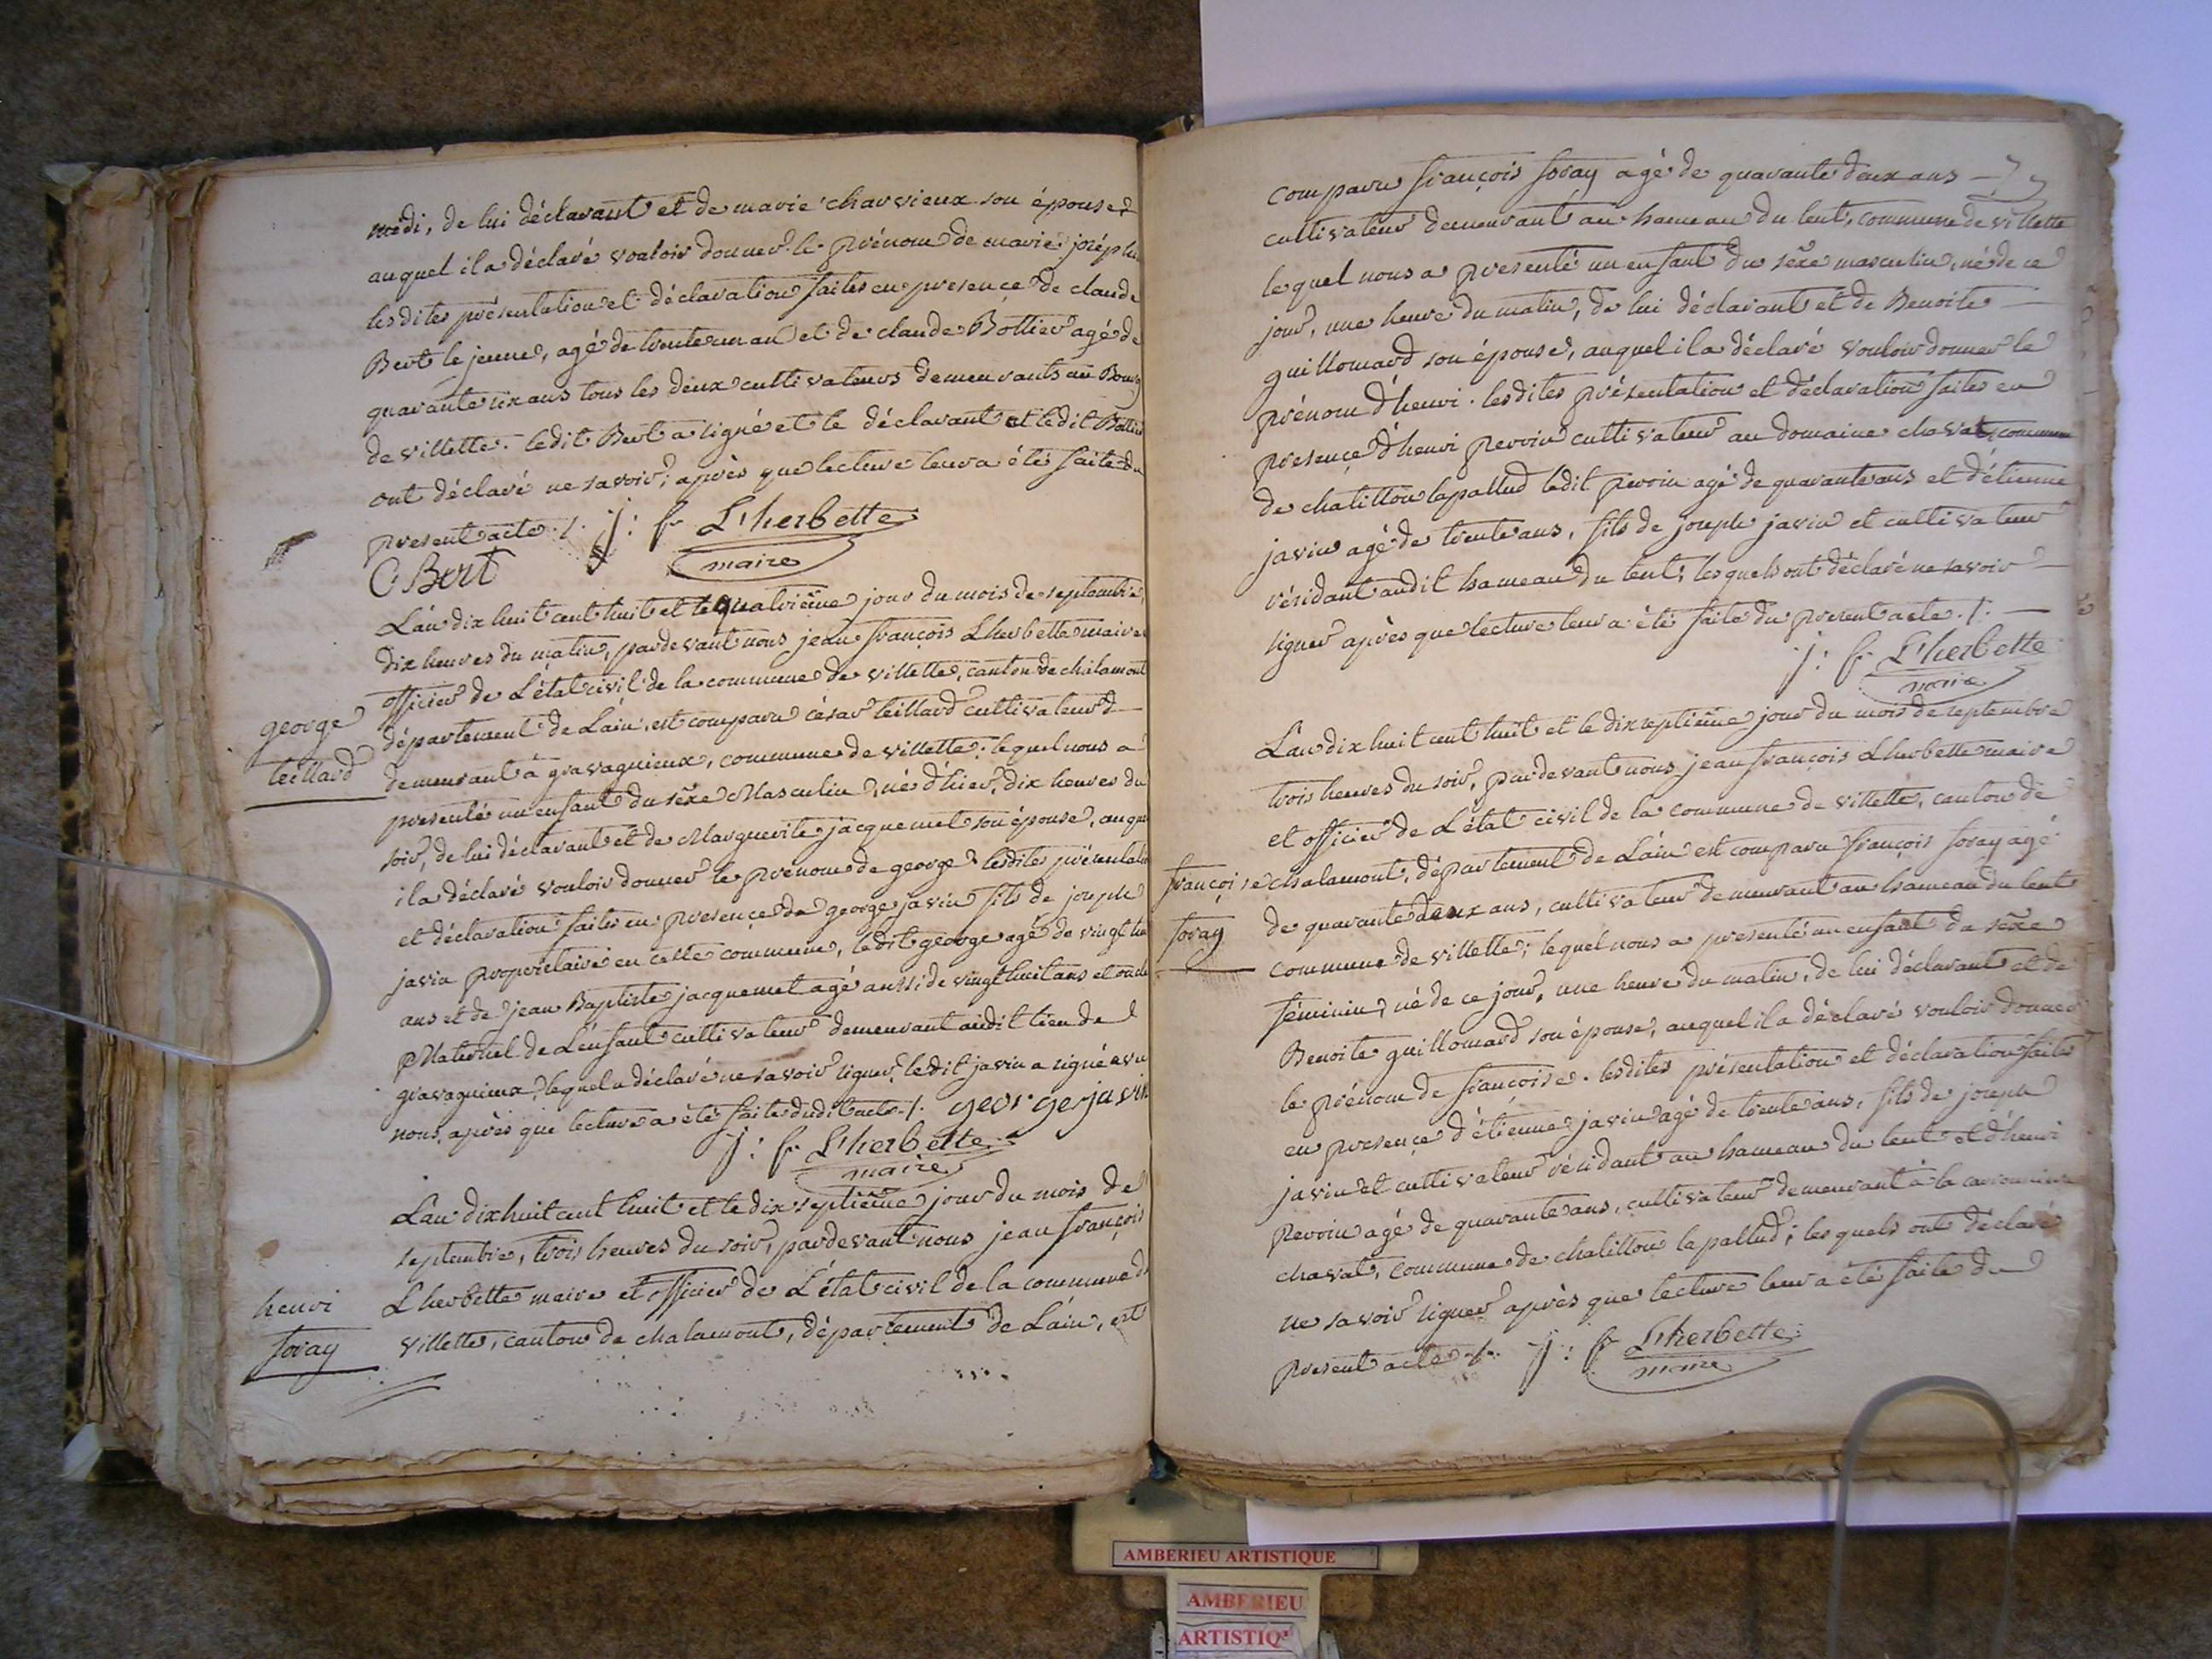 médi, de lui déclarant et de marie charvieux son épouse
auquel il a déclaré vouloir donner le prénom de marie joséph
lesdites présentation et déclaration faites en presençe de claude
Bert le jeune, agé de trente un an et de claude Bottier agé de
quarante six ans tous les deux cultivateurs demeurants au Bourg
de villette. ledit Bert a signé et le déclarant et ledit Bottier
ont déclaré ne savoir; après que lecture leur a été faite du
present acte ./. j: f. L'herbette
maire
C Bert
L'an dix huit cent huit et le quatrième jour du mois de septembre,
dix heures du matin, pardevant nous jean françois Lherbette maire
officier de L'état civil de la commune de villette, canton de chalamont
département de L'ain, est comparu césar teillard cultivateur
george
teillard
demeurant à gravagnieux, commune de villette; lequel nous a
presenté un enfant du sexe Masculin, né d'hier, dix heures du
soir, de lui déclarant et de Marguerite jacquemet son épouse, auquel
il a déclaré vouloir donner le prénom de george. lesdites présentation
et déclaration faites en presençe de george javin fils de joseph
javin propriétaire en cette commune, ledit george agé de vingt huit
ans et de jean Baptiste jacquemet agé aussi de vingt huit ans et oncle
Maternel de L'enfant cultivateur demeurant audit lieu de
gravagnieux, lequel a déclaré ne savoir signer, ledit javin a signé avec
nous, après que lecture a été faite dudit acte ./. george javin
j: f. L'herbette
maire
L'an dix huit cent huit et le dix septième jour du mois de
septembre, trois heures du soir, pardevant nous jean françois
henri
foray
Lherbette maire et officier de L'état civil de la commune de
villette, canton de chalamont, département de L'ain, est
comparu françois foray agé de quarante deux ans
cultivateur demeurant au hameau du lent, commune de villette
lequel nous a presenté un enfant du sexe masculin, né de ce
jour, une heure du matin, de lui déclarant et de Benoite
guillomard son épouse, auquel il a déclaré vouloir donner le
prénom d'henri. lesdites présentation et déclaration faites en
presençe d'henri perroin cultivateur au domaine chavat, commune
de chatillon lapallud ledit perroin agé de quarante ans et d'étienne
javin agé de trente ans, fils de joseph javin et cultivateur
résidant audit hameau du lent; lesquels ont déclaré ne savoir
signer après que lecture leur a été faite du present acte ./.
j: f. L'herbette
maire
L'an dix huit cent huit et le dix septième jour du mois de septembre
trois heures du soir, pardevant nous jean françois Lherbette maire
et officier de L'état civil de la commune de villette, canton de
françoise
foray
chalamont, département de L'ain est comparu françois foray agé
de quarante deux ans, cultivateur demeurant au hameau du lent
commune de villette; lequel nous a presenté un enfant du sexe
féminin, né de ce jour, une heure du matin, de lui déclarant et de
Benoite guillomard son épouse, auquel il a déclaré vouloir donner
le prénom de françoise. lesdites présentation et déclaration faites
en presençe d'étienne javin agé de trente ans, fils de joseph
javin et cultivateur résidant au hameau du lent et d'henri
perroin agé de quarante ans, cultivateur demeurant à la
chavat, commune de chatillon lapallud; lesquels ont déclaré
ne savoir signer après que lecture leur a été faite du
present acte ./. j: f. L'herbette
maire
AMBERIEU ARTISTIQUE
AMBERIEU
ARTISTIQ